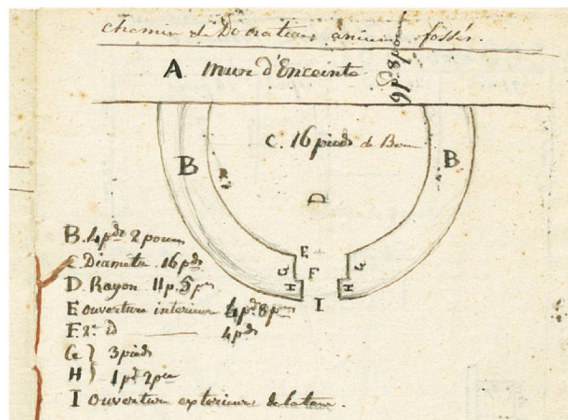 chemin de ancien fossés.
A mur d'Enceinte
16 p. 8 po
C. 16 pieds de
B B
D
E
G F G
H H
I
B. 4 pds 2 pouces
C Diametre. 16 pds
D. Rayon 11 p. 5 po
E ouverture interieure 4 pds 8 po
F. 2e d 4 pds
G } 3 pieds
H } 1 pd 2 po
I ouverture exterieure de la tour.